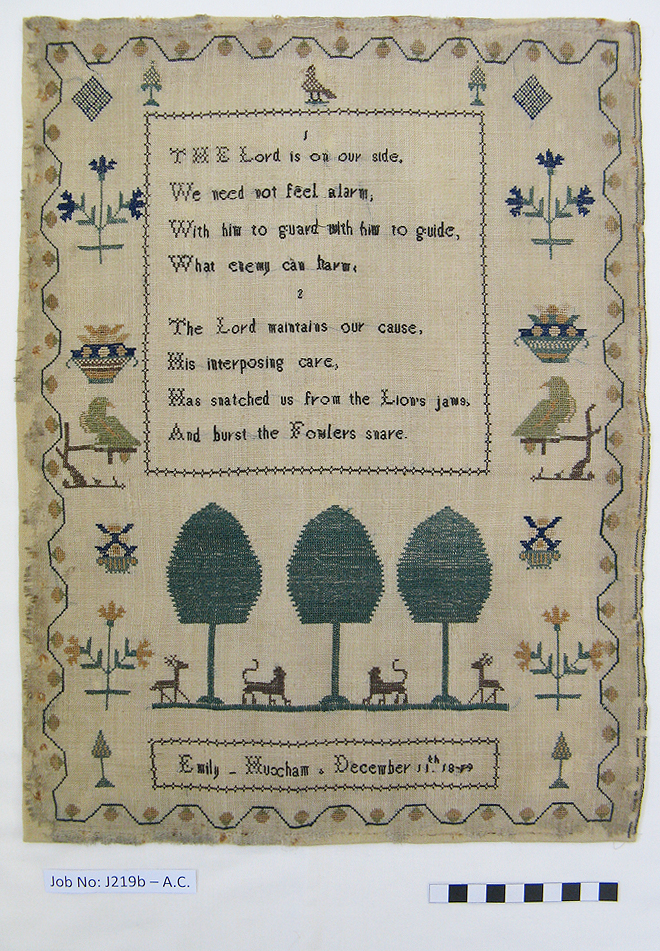 1
THE Lord is on our side,
We need not feel alarm;
With him to guard with him to guide,
What enemy can harm,
2
The Lord maintains our cause,
His interposing care,
Has snatched us from the Lion's jaws,
And burst the Fowlers snare.
Emily - Huxham . December 11th
Job No: J219b – A.C.